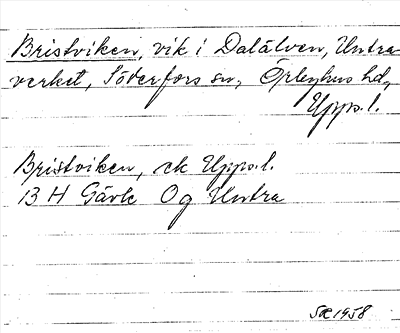 Bristviken, vik i Dalälven, Untra-
verket, Söderfors sn, Örbyhus hd,
Upps. l.
Bristviken, ek Upps. l.
13 H Gävle Og Untra
1958